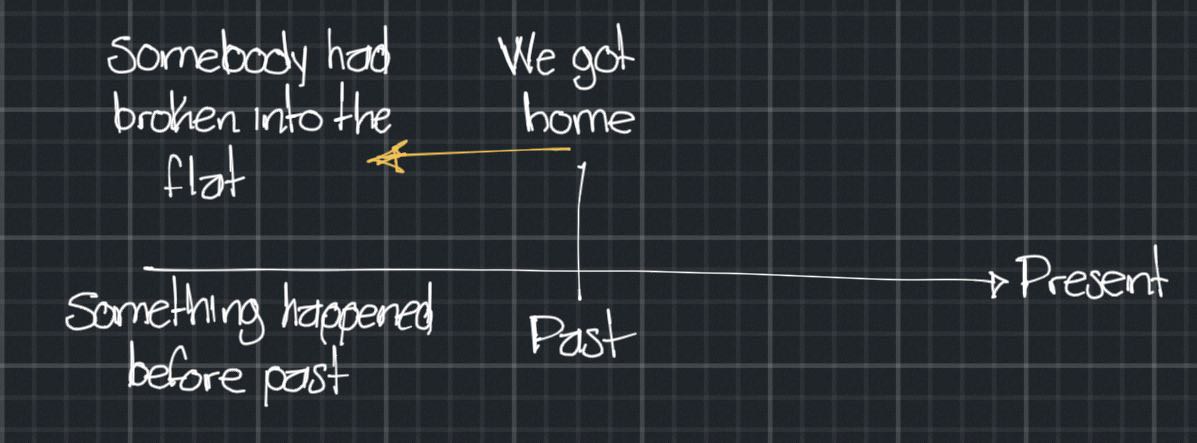 Somebody had
broken into the
flat
We got
home
Present
Something happened
before past
Past